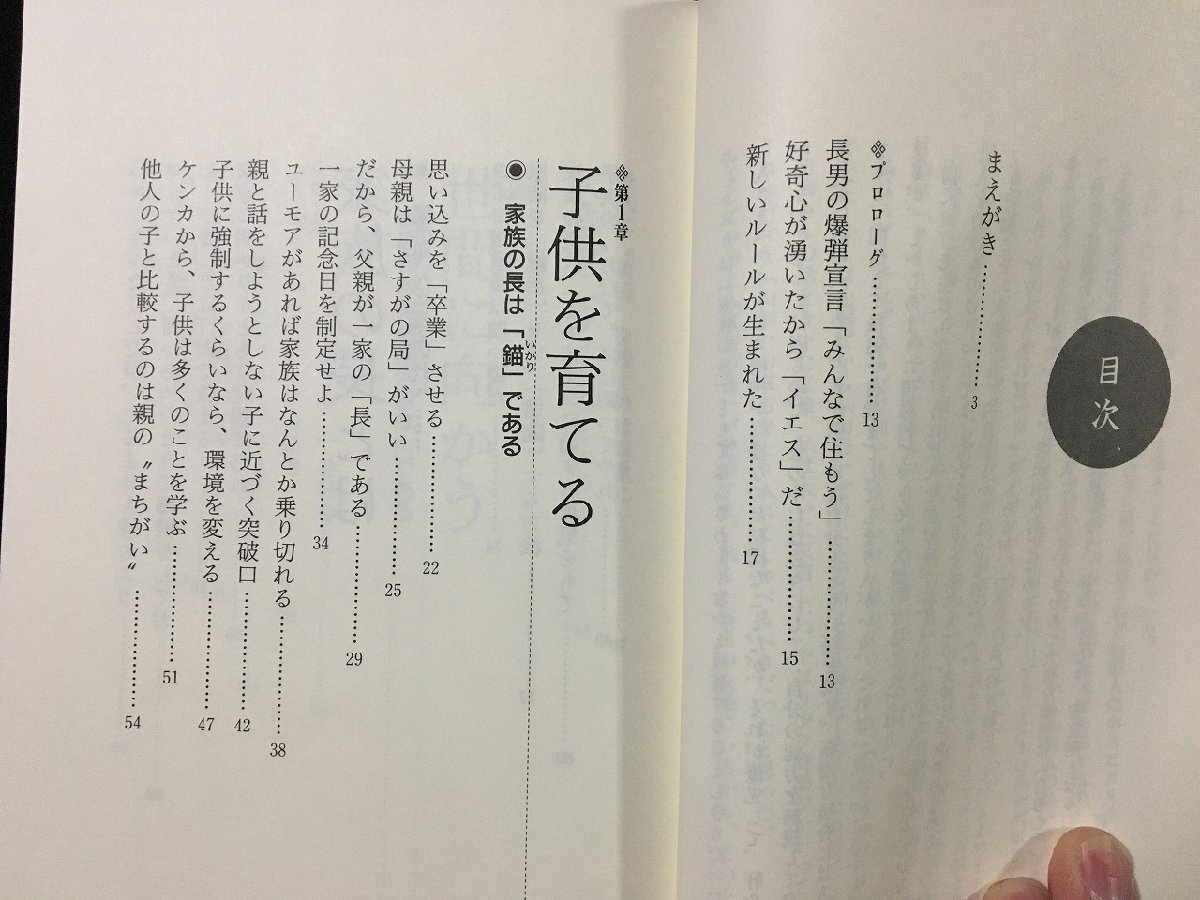 目次
まえがき…………3
❖プロローグ……………13
長男の爆弾宣言「みんなで住もう」……………13
好奇心が湧いたから「イエス」だ……………15
新しいルールが生まれた……………17
❖第1章
子供を育てる
◉ 家族の長は「錨」である
いかり
思い込みを「卒業」させる……………22
母親は「さすがの局」がいい……………25
だから、父親が一家の「長」である……………29
一家の記念日を制定せよ……………34
ユーモアがあれば家族はなんとか乗り切れる……………38
親と話をしようとしない子に近づく突破口……………42
子供に強制するくらいなら、環境を変える……………47
ケンカから、子供は多くのことを学ぶ……………51
他人の子と比較するのは親の〝まちがい〟……………54